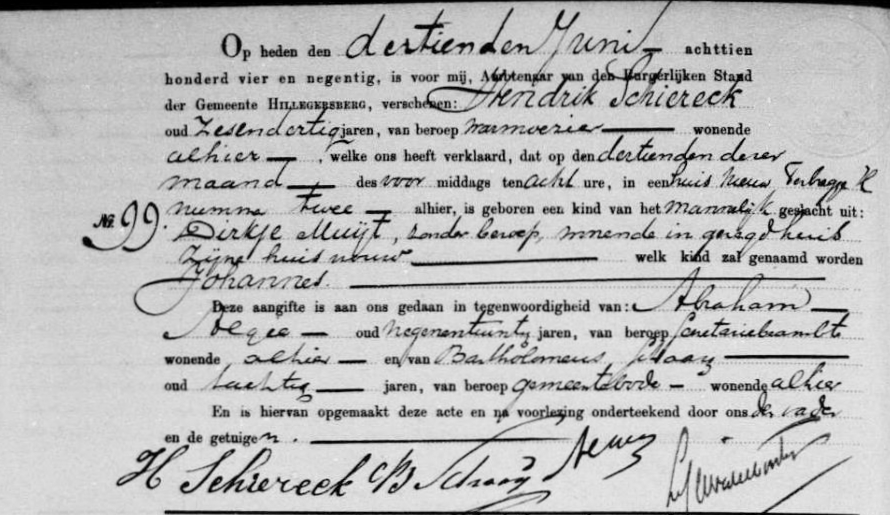 Op heden den dertienden Juni achttien
honderd vier en negentig, is voor mij, Ambtenaar van den Burgerlijken Stand
der Gemeente HILLEGERSBERG, verschenen: Hendrik Schiereck
oud Zesendertig jaren, van beroep warmoezier wonende
alhier, welke ons heeft verklaard, dat op den dertienden dezer
maand des voor middags ten acht ure, in een huis Nieuw Terbregge K
nummer twee alhier, is geboren een kind van het mannelijk geslacht uit:
No. 99. Dirkje Muijt, zonder beroep, wonende in gezegd huis
Zijne huisvrouw welk kind zal genaamd worden
Johannes.
Deze aangifte is aan ons gedaan in tegenwoordigheid van: Abraham
oud negenentwintig jaren, van beroep Secretariebeambte
wonende alhier en van Bartholomeus
oud tachtig jaren, van beroep gemeentebode wonende alhier
En is hiervan opgemaakt deze acte en na voorlezing onderteekend door ons de vader
en de getuigen.
H Schiereck B Schraag